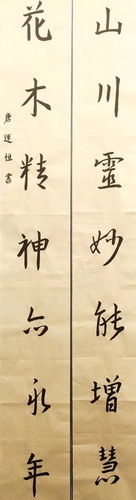 山川靈妙能增慧
花木精神亦永年
唐運恒書